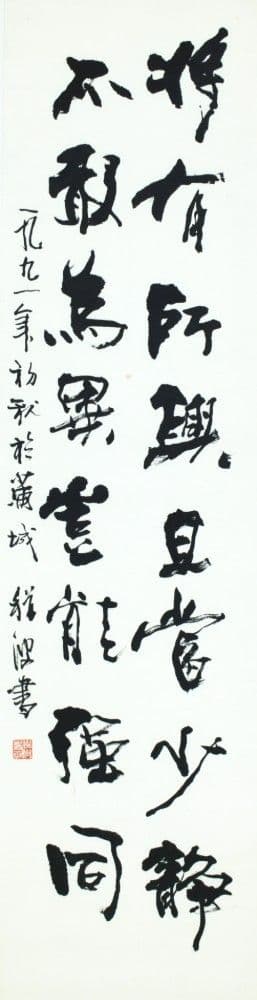 將有所興且當少靜
不敢為異豈能強同
一九九一年初秋於城程書